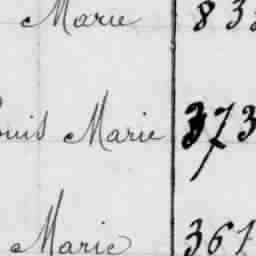 Marie 83
ouis Marie 373
Marie 361